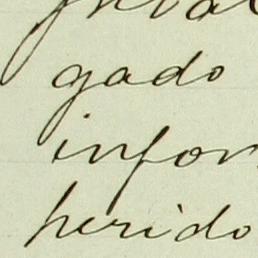 gado
infor
perido